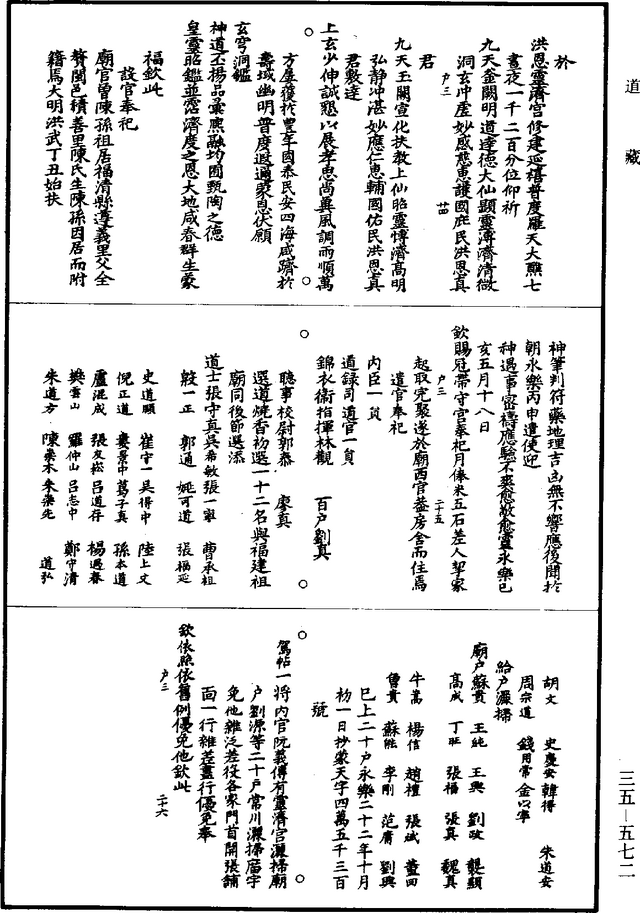 道藏
於
洪恩靈濟宮修建延禧普度羅天大醮七
晝夜一千二百分位仰祈
九天金闕明道達德大仙顯靈溥濟清微
洞玄沖虛妙感慈惠護國庇民洪恩真
戶三
廿四
君
九天玉闕宣化扶教上仙昭靈博濟高明
弘靜沖湛妙應仁惠輔國佑民洪恩真
君敷達
上玄少伸誠懇以展孝思尚冀風調雨順萬
方屢獲於豐年國泰民安四海咸躋於
壽域幽明普度遐邇蒙恩伏願
玄穹洞鑑
神道丕揚品彙熙融均囿甄陶之德
皇靈昭鑑並霑濟度之恩大地咸春群生蒙
福欽此
設官奉祀
廟官曾陳孫祖居福清縣遵義里父全
贅閩邑積善里陳氏生陳孫因居而附
籍焉大明洪武丁丑始扶
神筆判符藥地理吉凶無不響應後聞於
朝永樂丙申遣使迎
神遇事密禱應驗不爽愈敬愈靈永樂己
亥五月十八日
欽賜冠帶守宮奉祀月俸米五石差人挈家
戶三
二十五
起取完聚遂於廟西官蓋房舍而住焉
遣官奉祀
內臣一員
道錄司道官一員
錦衣衛指揮林觀 百戶劉真
聽事校尉郭恭 廖真
選道燒香初選一十二名與福建祖
廟同後節選添
道士張守真吳希敏張一寧 曹承祖
殷一正 郭通 姚可道 張福延
史道顯 崔守一吳得中 陸上文
倪正道 裴景中葛子真 孫本道
盧混成 張友崧呂道存 楊過春
樊雲山 羅仲山呂志中 鄭守清
朱道方 陳樂本朱樂純 道弘
胡文 史慶安韓得 朱道安
周宗道 錢用常金以寧
給戶灑掃
廟戶蘇貴 王純 王興 劉政 龔顯
高成 丁旺 張福 張真 魏真
牛嵩 楊信 趙權 張斌 董四
曹貴 蘇能 李剛 范廣 劉興
已上二十戶永樂二十二年十月
初一日抄蒙天字四萬五千三百
號
駕帖一將內官阮義傳有靈濟宮灑掃廟
戶劉源等二十戶常川灑掃廟宇
免他雜泛差役各家門首開張鋪
面一行雜差盡行優免奉
欽依照依舊例優免他欽此
戶三
二十六
三五—五七二